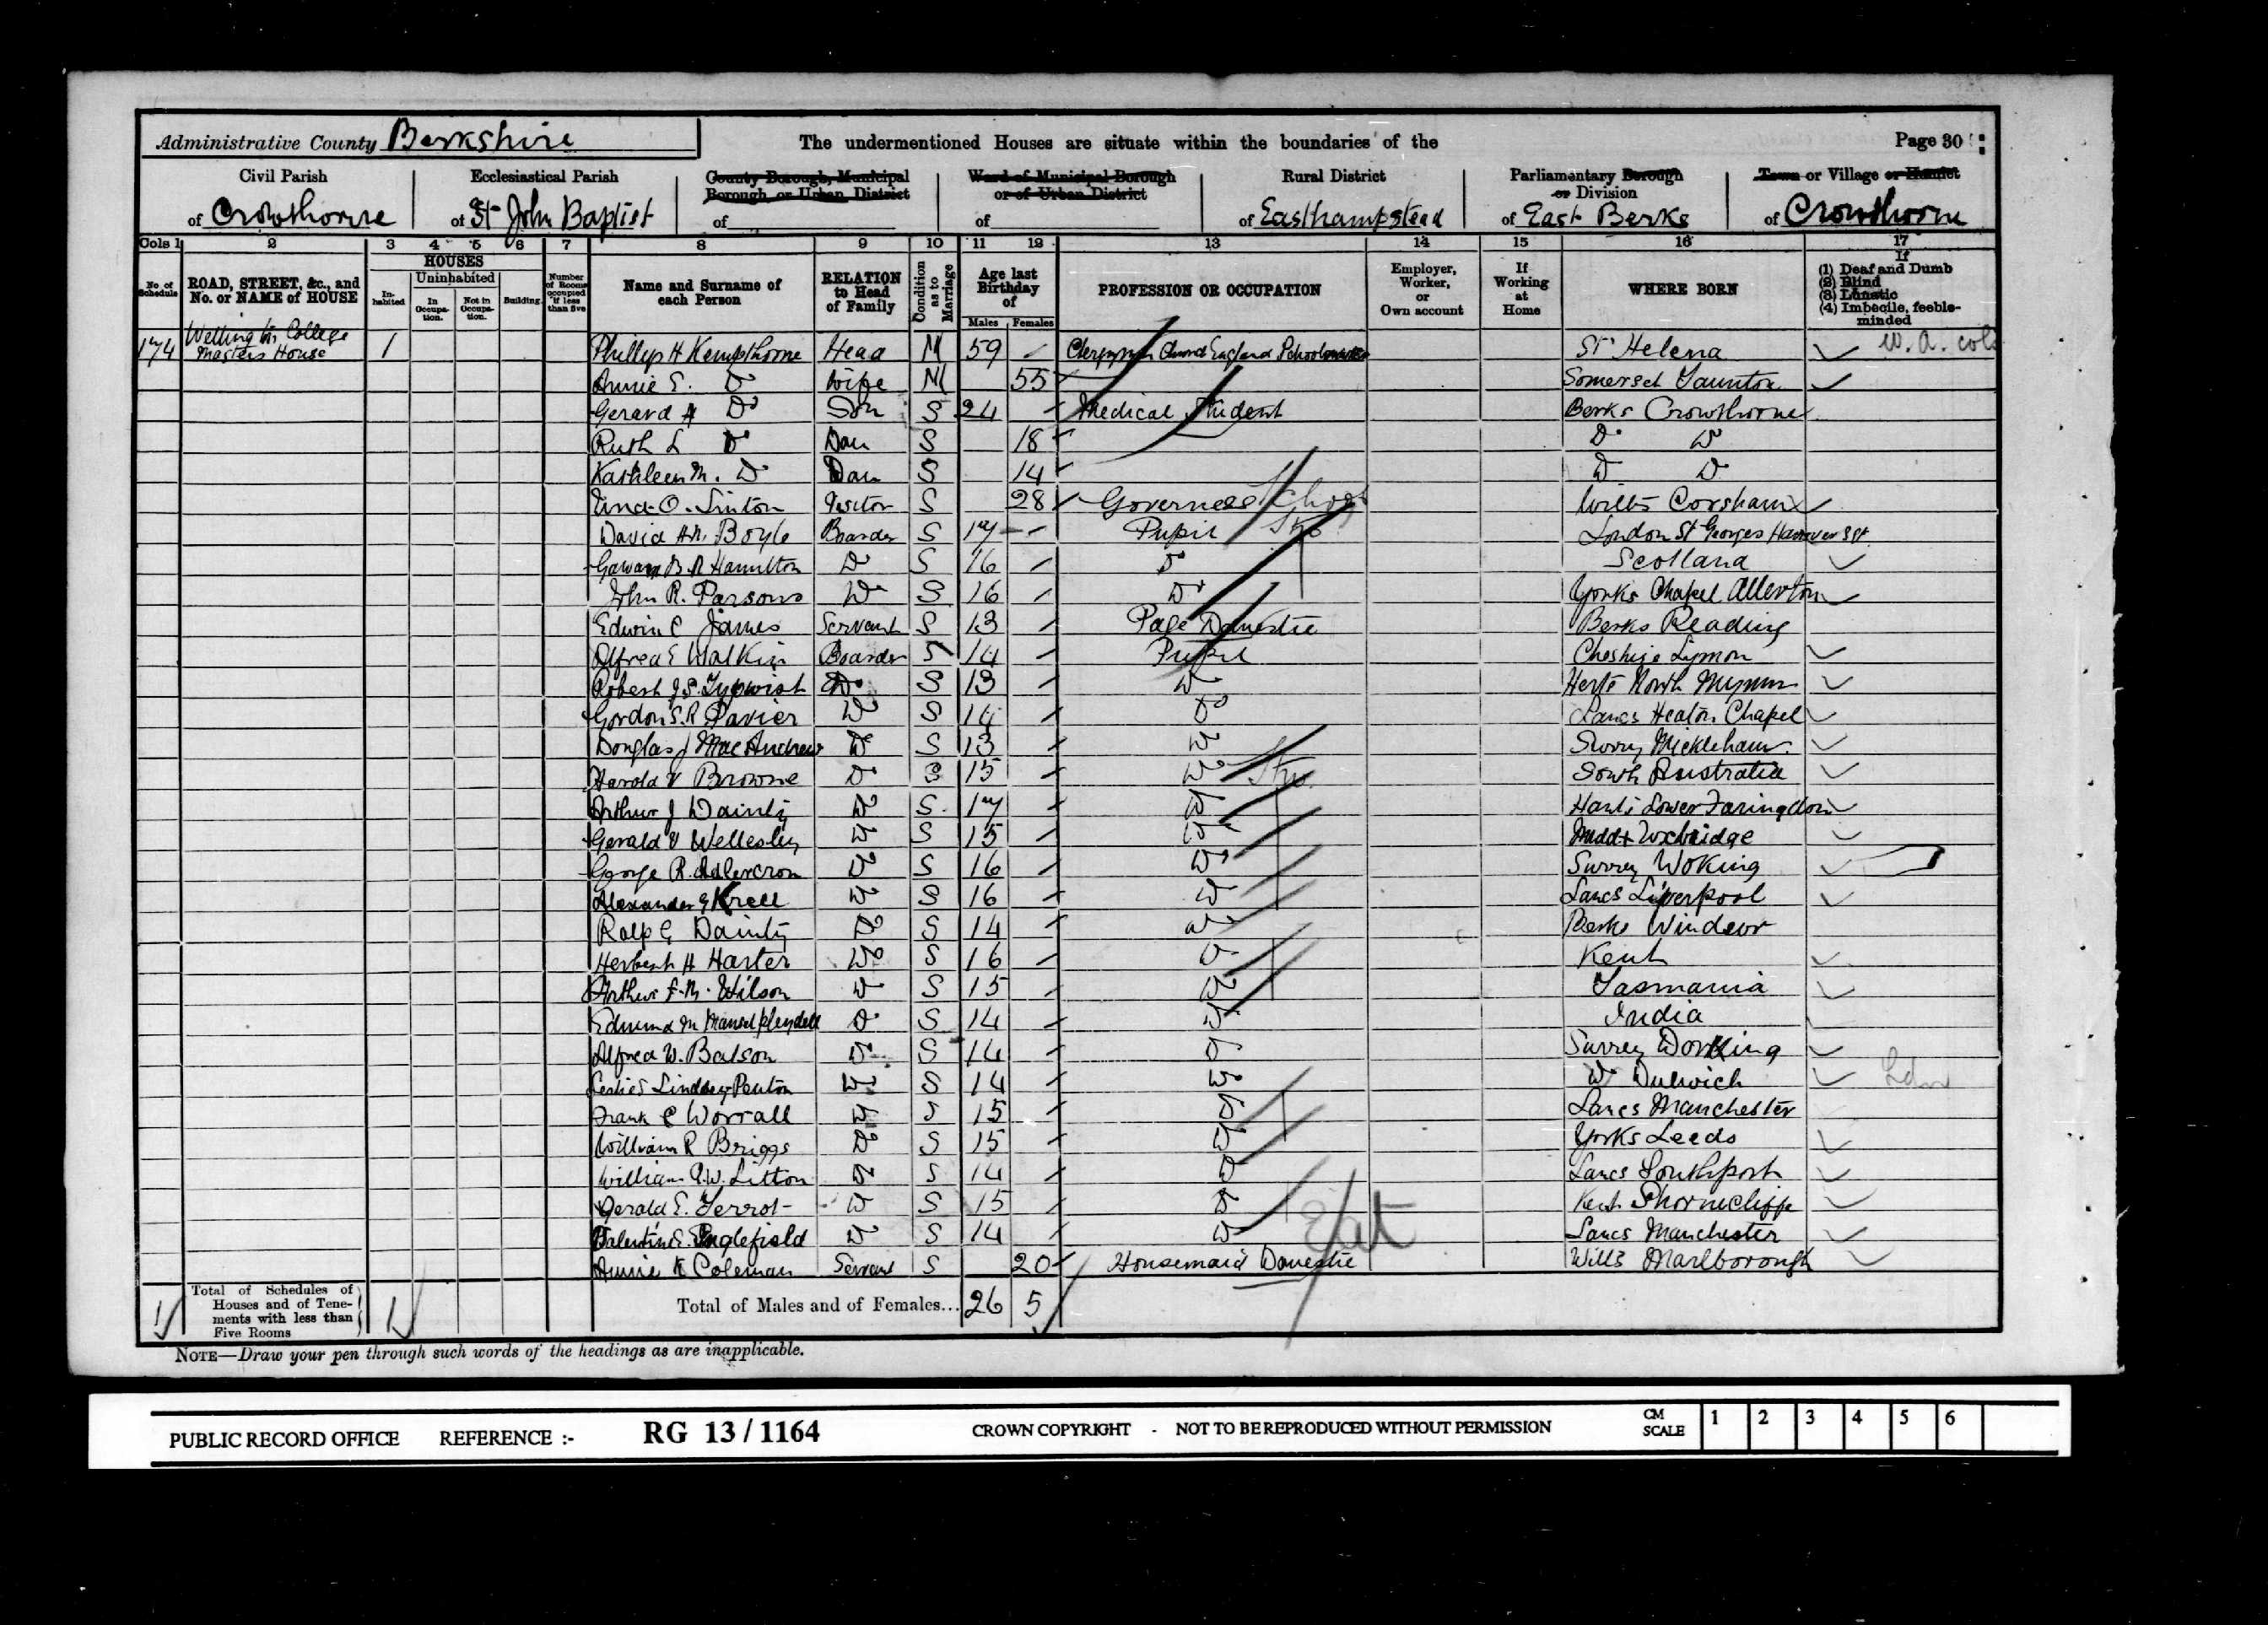 Administrative County Berkshire The undermentioned Houses are situate within the boundaries of the Page 30
Civil Parish Ecclesiastical Parish County Borough, Municipal Borough or Urban District Ward of Municipal Borough or of Urban District Rural District Parliamentary Borough or Division Town or Village or Hamlet
of Crowthorne of St John Baptist of of of Easthampstead of East Berks of Crowthorne
Cols 1 2 3 4 5 6 7 8 9 10 11 12 13 14 15 16 17
No. of Schedule ROAD, STREET, &c., and No. or NAME of HOUSE HOUSES Inhabited Uninhabited In Occupation. Not in Occupation. Building. Number of Rooms occupied if less than five Name and Surname of each Person RELATION to Head of Family Condition as to Marriage Age last Birthday of Males Females PROFESSION OR OCCUPATION Employer, Worker, or Own account If Working at Home WHERE BORN If (1) Deaf and Dumb (2) Blind (3) Lunatic (4) Imbecile, feeble-minded
174 Wellington College Masters House 1 Phillip H Kempthorne Head M 59 Clergyman Church England Schoolmaster St Helena
Annie E. Do Wife M 55 Somerset Taunton
Gerard A Do Son S 24 Medical Student Berks Crowthorne
Ruth L Do Dau S 18 Do Do
Kathleen M. Do Dau S 14 Do Do
O. Linton Visitor S 28 Governess School Wilts Corsham
David Boyle Boarder S 17 Pupil London St Georges Hanover Sqr
Gawain B. R Hamilton Do S 16 Do Scotland
John R. Parsons Do S 16 Do Yorks Chapel Allerton
Edwin C James Servant S 13 Page Domestic Berks Reading
Alfred E Walkin Boarder S 14 Pupil Cheshire Lymm
Robert J. S. Do S 13 Do Herts North Mymms
Gordon S. R Pavier Do S 14 Do Lancs Heaton Chapel
Douglas J MacAndrew Do S 13 Do Surrey Mickleham
Harold V Browne Do S 15 Do South Australia
Arthur J Dainty Do S 17 Do Hants Lower Faringdon
Gerald V Wellesley Do S 15 Do Middx Uxbridge
George R. Adlercron Do S 16 Do Surrey Woking
Alexander G Krell Do S 16 Do Lancs Liverpool
Ralp G Dainty Do S 14 Do Berks Windsor
Herbert H Harter Do S 16 Do Kent
Arthur F. M. Wilson Do S 15 Do Tasmania
Edmund M Mansel Pleydell Do S 14 Do India
Alfred W. Batson Do S 14 Do Surrey Dorking
Leslie S Lindsey Penton Do S 14 Do Do Dulwich
Frank C Worrall Do S 15 Do Lancs Manchester
William R Briggs Do S 15 Do Yorks Leeds
William A. W. Litton Do S 14 Do Lancs Southport
Gerald E. Terrot Do S 15 Do Kent Shorncliffe
Valentine E. Englefield Do S 14 Do Lancs Manchester
Annie K Coleman Servant S 20 Housemaid Domestic Wilts Marlborough
1 Total of Schedules of Houses and of Tenements with less than Five Rooms 1 Total of Males and of Females... 26 5
NOTE—Draw your pen through such words of the headings as are inapplicable.
PUBLIC RECORD OFFICE REFERENCE :- RG 13/1164 CROWN COPYRIGHT - NOT TO BE REPRODUCED WITHOUT PERMISSION CM SCALE 1 2 3 4 5 6